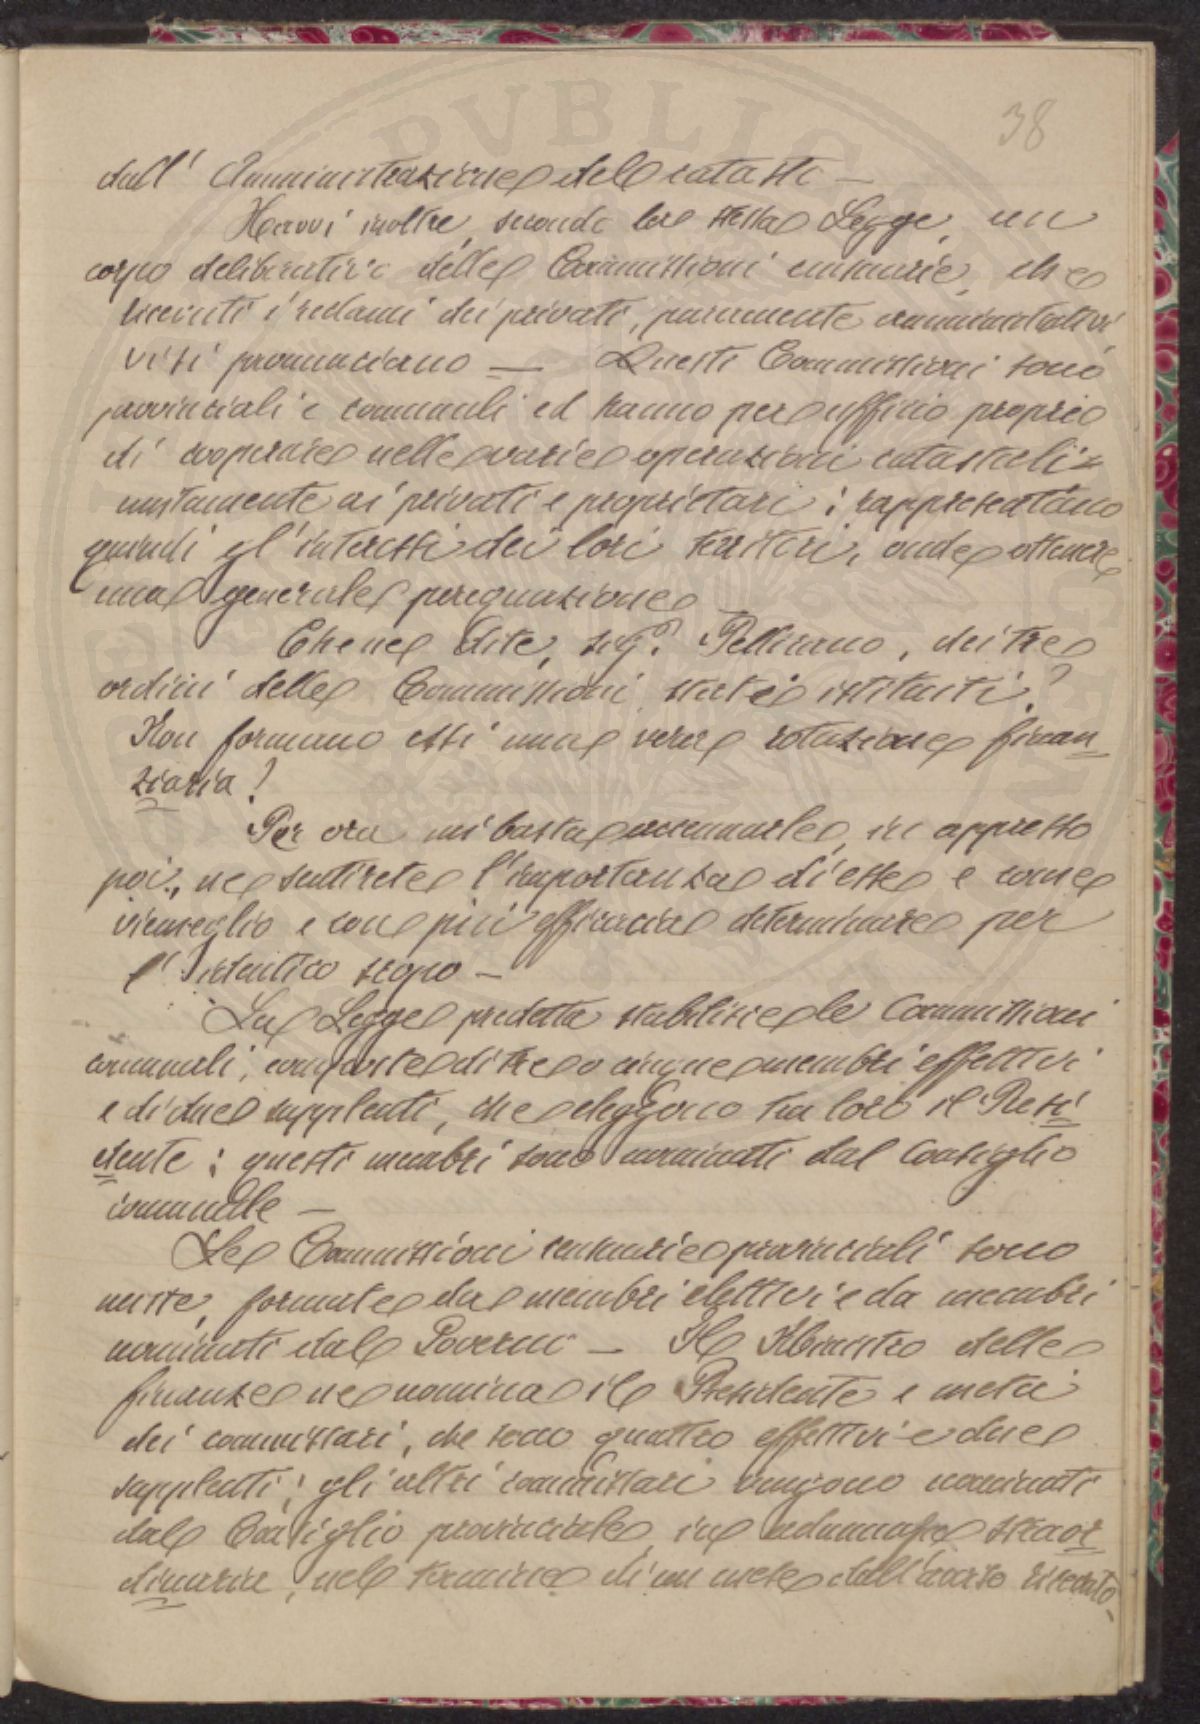 38
dall' Amministrazione del catasto —
Havvi inoltre, secondo la stessa Legge, un
corpo deliberativo delle Commissioni censuarie, che
ricevuti i reclami dei privati, puramente amministrativi
vi si pronunciano — Queste Commissioni sono
provinciali e comunali ed hanno per ufficio proprio
di cooperare nelle varie operazioni catastali =
unitamente ai privati e proprietari; rappresentano
quindi gl'interessi dei loro territori, onde ottenere
una generale perequazione
Che ne dite, sig.r Pellicano, dei tre
ordini delle Commissioni state istituite?
Non formano essi una vera rotazione finan
ziaria?
Per ora mi basta accennarle, in appresso
poi, ne sentirete l'importanza di esse e come
viemeglio e con più efficacia determinare per
l'identico scopo —
La Legge predetta stabilisce le Commissioni
comunali, composte di tre o cinque membri effettivi
e di due supplenti, che eleggono tra loro il Presi
dente: questi membri sono nominati dal Consiglio
comunale —
Le Commissioni censuarie provinciali sono
miste, formate da membri elettivi e da membri
nominati dal Governo — Il Ministro delle
finanze ne nomina il Presidente e metà
dei commissari, che sono quattro effettivi e due
supplenti; gli altri commissari vengono nominati
dal Consiglio provinciale, in adunanza straor
dinaria, nel termine di un mese dall'avviso ricevuto,